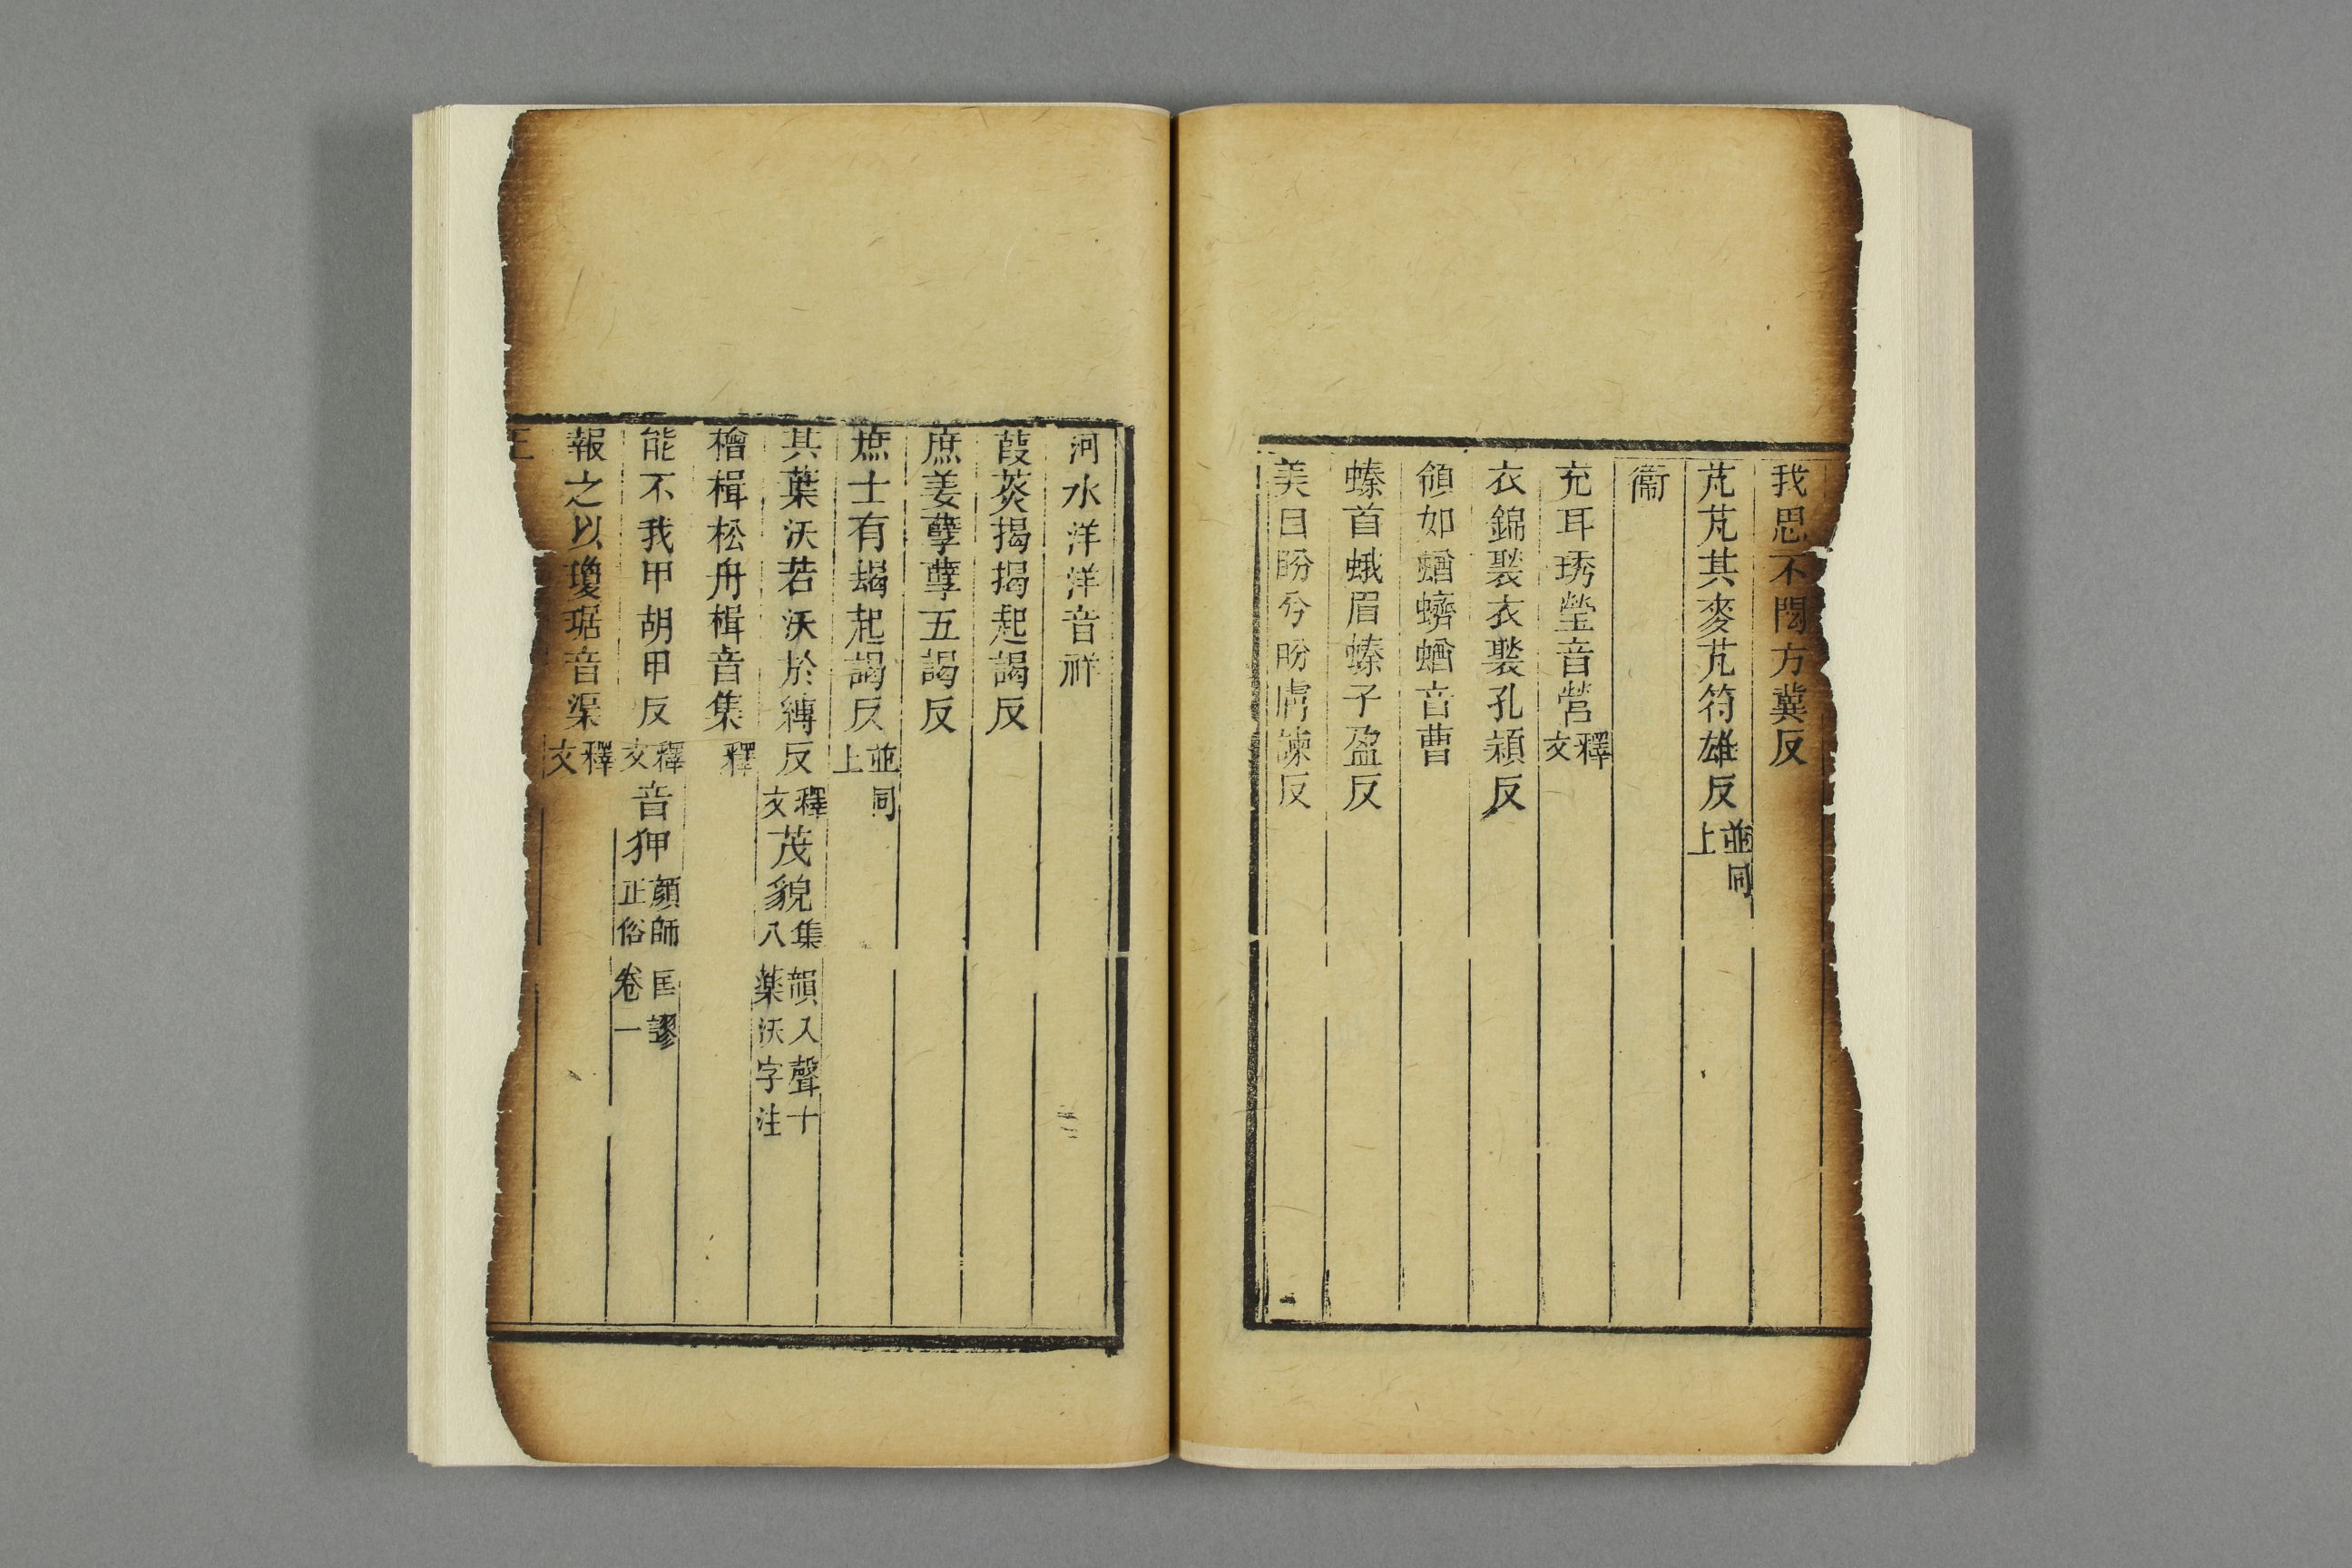 我思不閟方冀反
芃芃其麥芃符雄反並同上
衞
充耳琇瑩音營釋文
衣錦褧衣褧孔穎反
領如蝤蠐蝤音曹
螓首蛾眉螓子盈反
美目盼兮盼膚諫反
河水洋洋音祥
葭菼揭揭起謁反
庶姜孽孽五謁反
庶士有朅起謁反並同上
其葉沃若沃於縛反釋文茂貌集韻入聲十八藥沃字注
檜楫松舟楫音集釋
能不我甲胡甲反釋文音狎顏師匡謬正俗卷一
報之以瓊琚音渠釋文
王